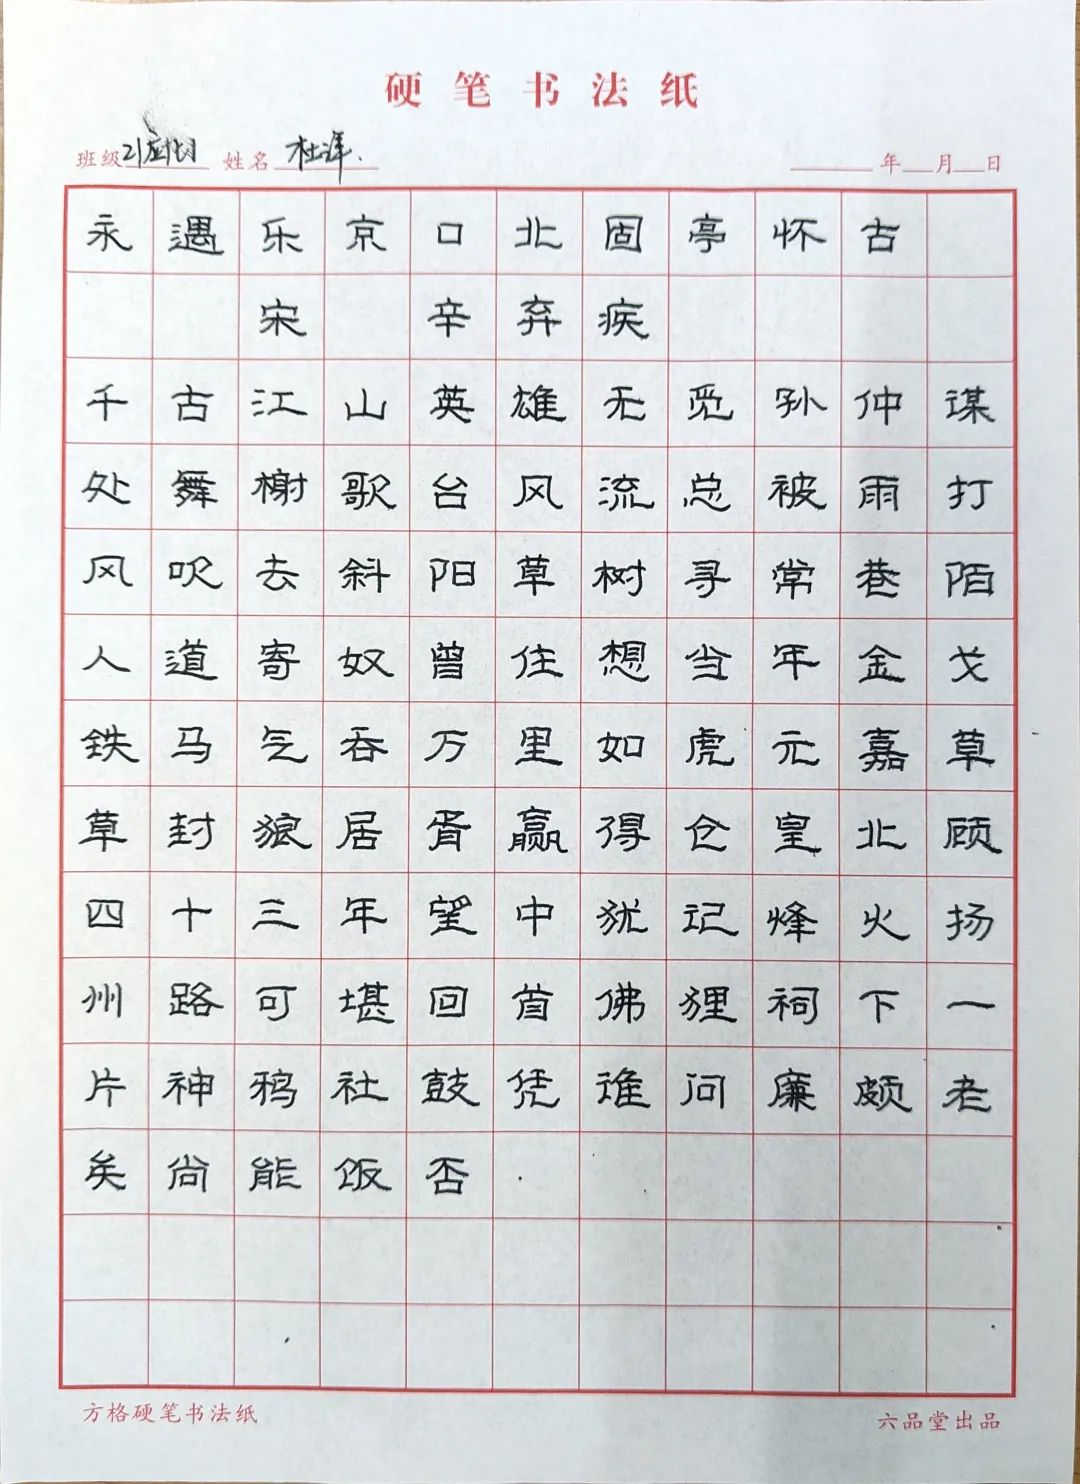 硬笔书法纸
班级21 姓名杜洋. 年 月 日
永遇乐京口北固亭怀古
宋 辛弃疾
千古江山英雄无觅孙仲谋
处舞榭歌台风流总被雨打
风吹去斜阳草树寻常巷陌
人道寄奴曾住想当年金戈
铁马气吞万里如虎元嘉草
草封狼居胥赢得仓皇北顾
四十三年望中犹记烽火扬
州路可堪回首佛狸祠下一
片神鸦社鼓凭谁问廉颇老
矣尚能饭否
方格硬笔书法纸 六品堂出品